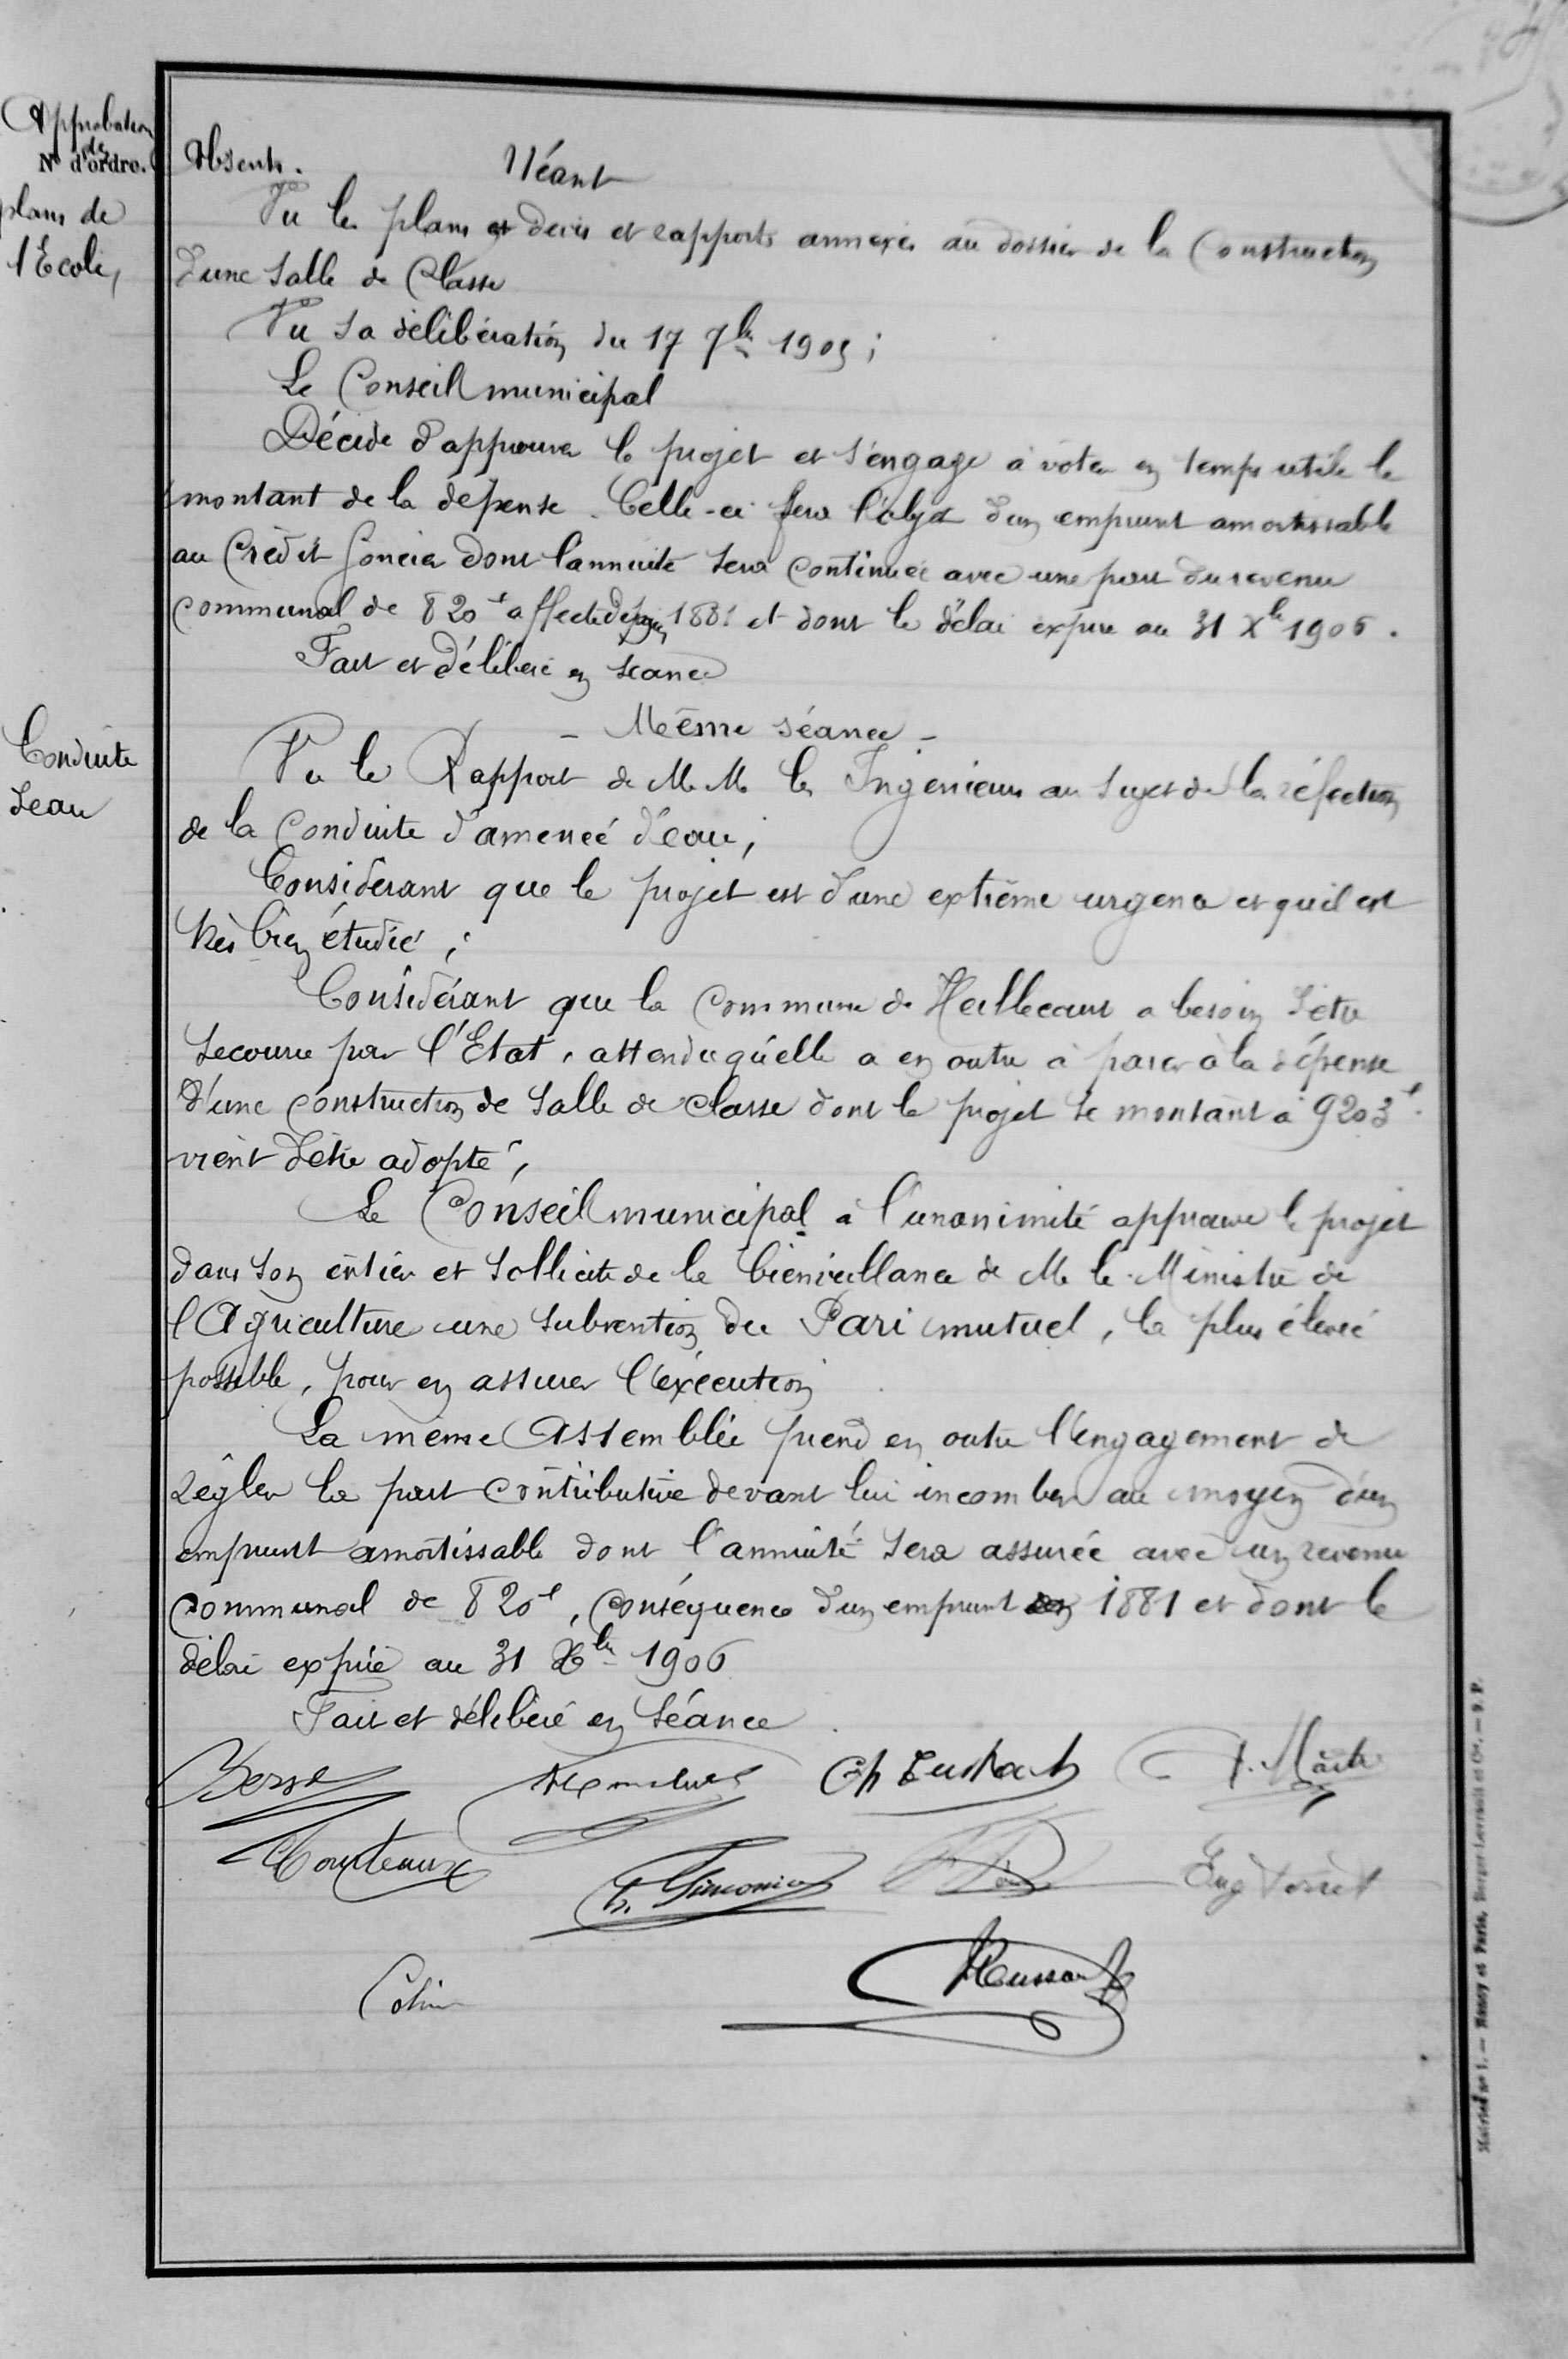 Approbation
de
N° d'ordre.
plans de
l'Ecole,
Absents. Néant
Vu les plans et devis et rapports annexés au dossier de la Construction
d'une Salle de Classe
Vu sa délibération du 17 7bre 1905 ;
Le Conseil municipal
Décide d'approuver le projet et s'engage à voter en temps utile le
montant de la dépense. Celle-ci fera l'objet d'un emprunt amortissable
au Crédit foncier dont l'annuité sera continuée avec une part du revenu
communal de 820f affecté depuis 1881 et dont le délai expire au 31 Xbre 1906.
Fait et délibéré en séance
- Même séance -
Conduite
d'eau
Vu le Rapport de M.M. les Ingénieurs au sujet de la réfection
de la Conduite d'amenée d'eau,
Considérant que le projet est d'une extrême urgence et qu'il est
très bien étudié ;
Considérant que la Commune de a besoin d'être
secourue par l'Etat, attendu qu'elle a en outre à parer à la dépense
d'une construction de salle de classe dont le projet se montant à 9203f
vient d'être adopté,
Le Conseil municipal à l'unanimité approuve le projet
dans son entier et sollicite de la bienveillance de M. le Ministre de
l'Agriculture une subvention du Pari mutuel, la plus élevée
possible, pour en assurer l'exécution
La même Assemblée prend en outre l'engagement de
régler la part contributive devant lui incomber au moyen d'un
emprunt amortissable dont l'annuité sera assurée avec un revenu
communal de 820f, conséquence d'un emprunt 1881 et dont le
délai expire au 31 Xbre 1906
Fait et délibéré en séance
Ch
Colin
Mairies n° 1. — Nancy et Paris, Berger-Levrault et Cie. — 9 P.